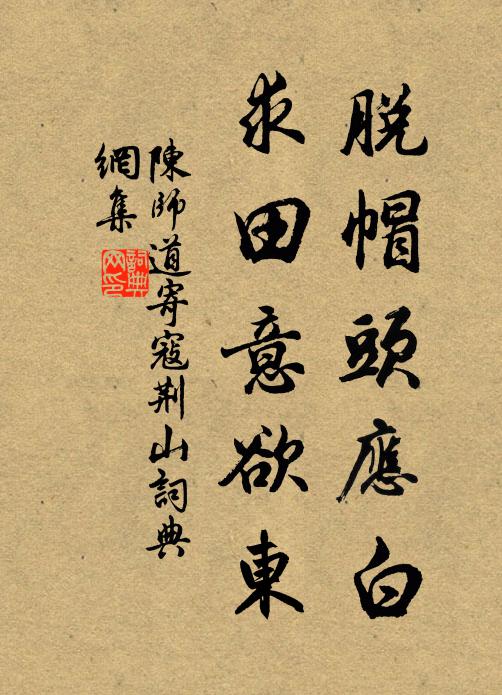 脫帽頭應白
求田意欲東
陳師道寄寇荆山詞典
網集
詞典
网印